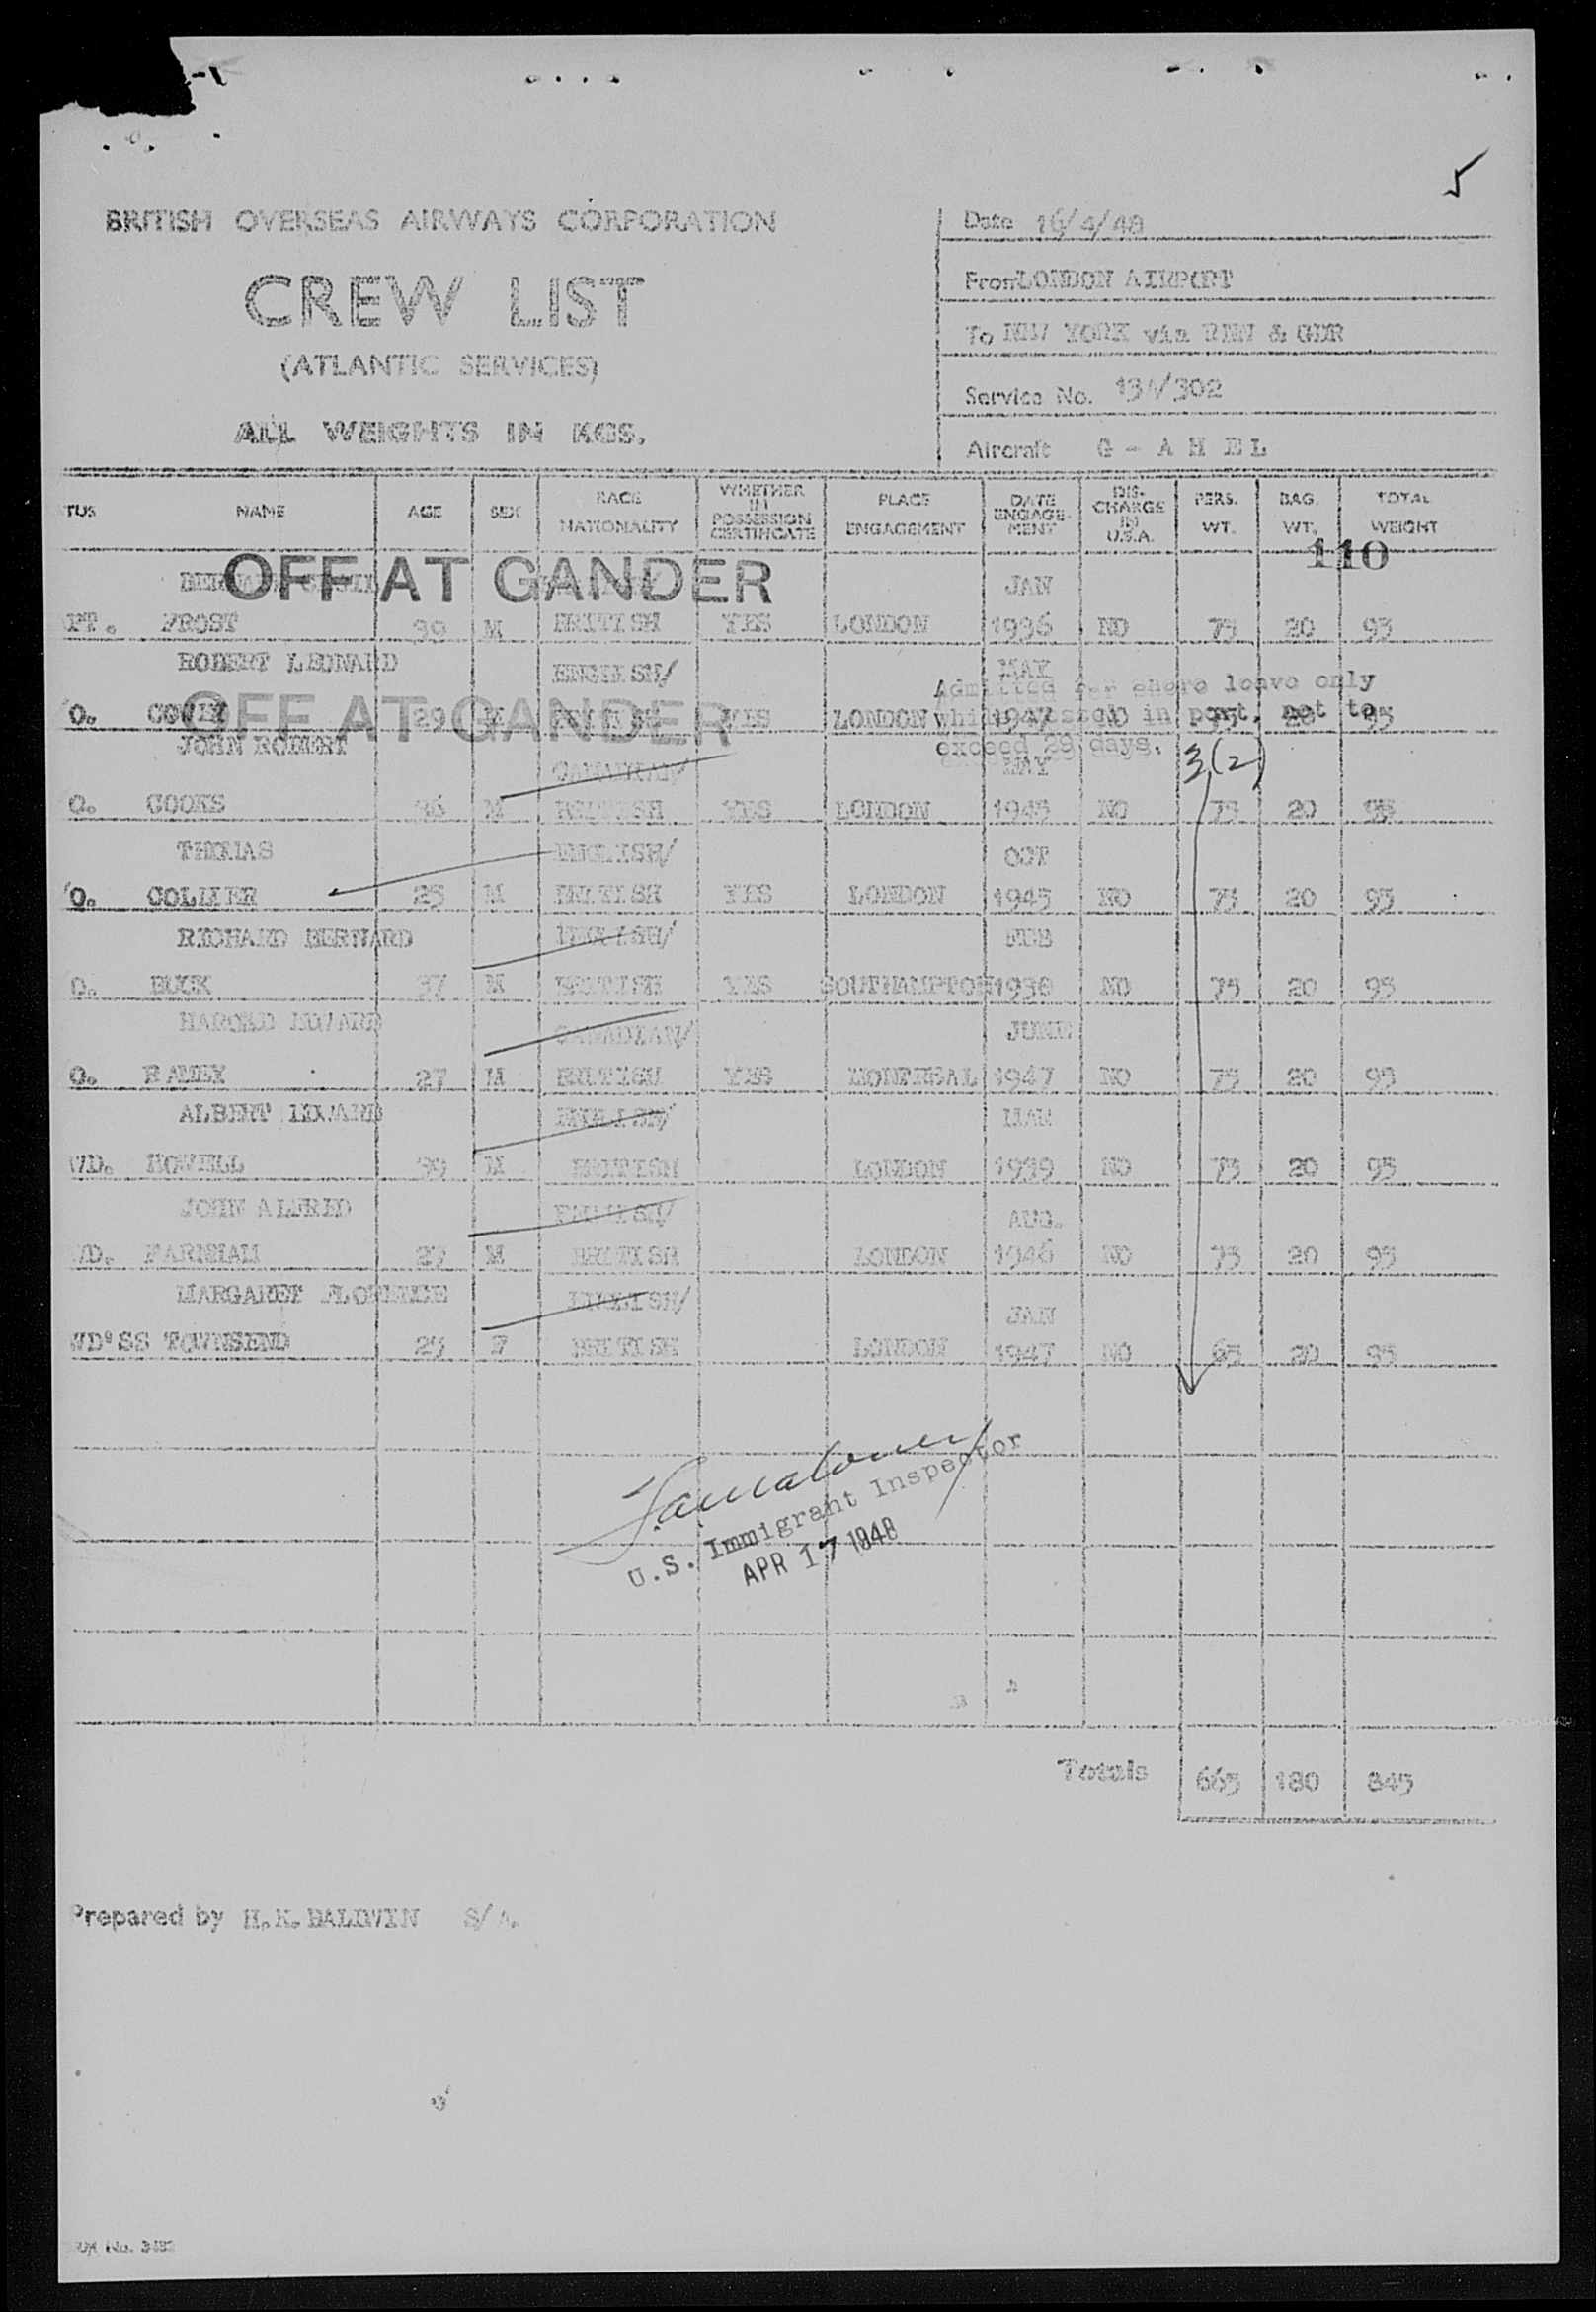 5
BRITISH OVERSEAS AIRWAYS CORPORATION
CREW LIST
(ATLANTIC SERVICES)
ALL WEIGHTS IN KGS.
Date 16/4/48
From LONDON AIRPORT
To NEW YORK via RIN & GDR
Service No. 131/302
Aircraft G - A H E L
TUS NAME AGE SEX RACE NATIONALITY WHETHER IN POSSESSION CERTIFICATE PLACE ENGAGEMENT DATE ENGAGE- MENT DIS- CHARGE IN U.S.A. PERS. WT. BAG. WT. TOTAL WEIGHT
110
OFF AT GANDER JAN
PT. FROST 39 M BRITISH YES LONDON 1936 NO 75 20 95
ROBERT LEONARD ENGLISH/ MAY
Admitted for shore leave only
O. 29 M YES LONDON 1947 75 20 95
OFF AT GANDER
while in port, not to
exceed 29 days.
JOHN ROBERT CANADIAN/ MAY 3(2)
O. COOKS 36 M BRITISH YES LONDON 1945 NO 75 20 95
THOMAS ENGLISH/ OCT
O. COLLIER 25 M BRITISH YES LONDON 1945 NO 75 20 95
RICHARD BERNARD ENGLISH/ FEB
O. BUCK 37 M BRITISH YES SOUTHAMPTON 1938 NO 75 20 95
HAROLD EDWARD CANADIAN/ JUNE
O. RAMEY 27 M BRITISH YES MONTREAL 1947 NO 75 20 95
ALBERT EDWARD ENGLISH/ MAR
WD. HOWELL 39 M BRITISH LONDON 1939 NO 75 20 95
JOHN ALFRED ENGLISH/ AUG.
WD. FARNHAM 27 M BRITISH LONDON 1946 NO 75 20 95
MARGARET FLORENCE ENGLISH/ JAN
WD'SS TOWNSEND 25 F BRITISH LONDON 1947 NO 65 20 95
U.S. Immigrant Inspector
APR 17 1948
Totals 665 180 845
Prepared by H.K. BALDWIN S/A.